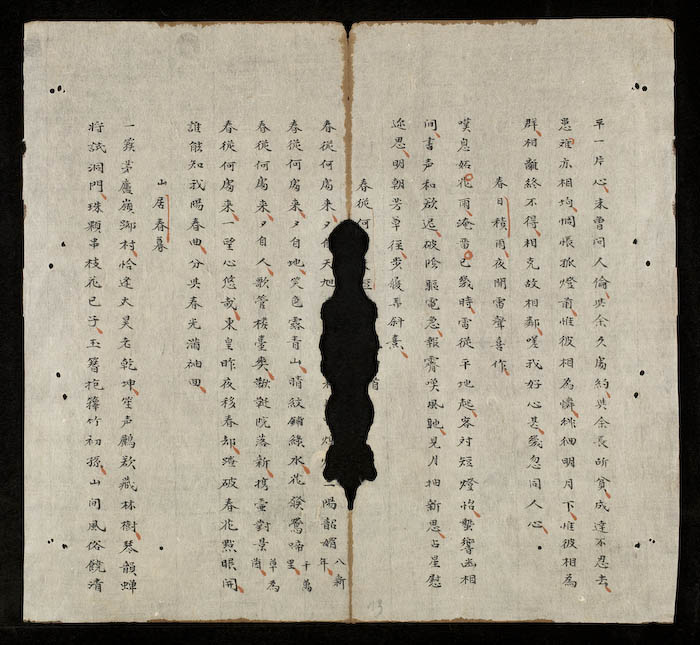 早一片心未曾同人倫共余久處約共余長所貧成達不忍去
患難亦相均惆悵孤燈前惟彼相為憐徘徊明月下惟彼相為
群相顧終不得相克故相鄰嘆我好心是幾忽同人心
春日積雨夜聞雷聲喜作
嘆息妬花雨淹留已幾時雷從平地起客對短燈怡蟄響幽相
問書声和欲遲破陰驅電急報霽嘆風馳見月抽新思占星慰
遠思明朝芳草徑步屧弄斜熹
春從何 來
春從何處來夕自天旭 一陽韶媚 八新年
春從何處來夕自地笑色露青山晴紋鋪綠水花發鶯啼 千萬里
春從何處來夕自人歌管樓臺奧歡誕院落新携壺對景 草為茵
春從何處來一望心悠哉東皇昨夜移春却踏破春花點眼開
誰能知我賜春曲分與春光滿袖回
山居春暮
一簇茅廬嶺鄉村恰逢大昊老乾坤笙声鸝歇藏林樹琴韻蟬
將試洞門珠顆串枝花已子玉簪抱籜竹初孫山間風俗饒清